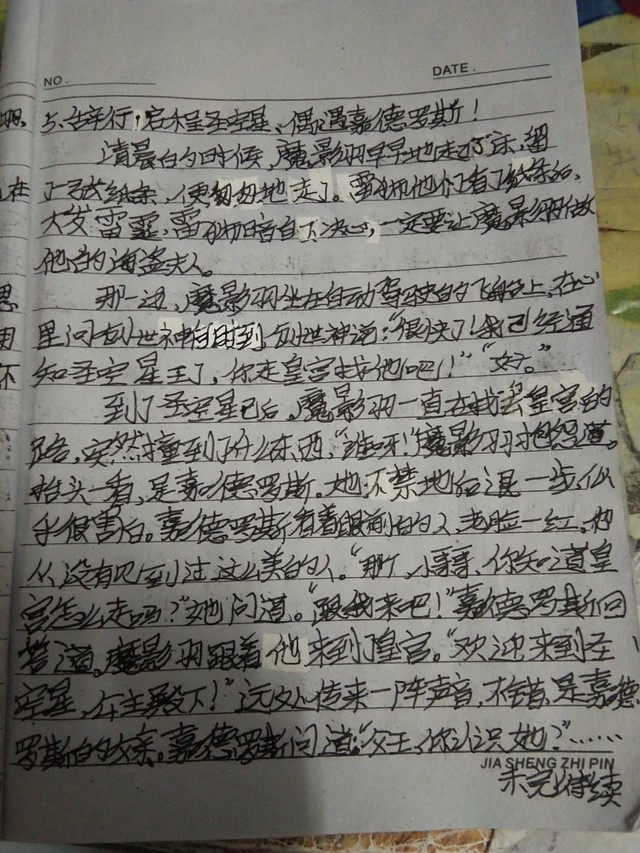 NO.
DATE.
5、告辛行，启程圣空星、偶遇嘉德罗斯！
清晨的时候，魔影羽早早地起了床，留
了张纸条，便匆匆地走了。雷狮他们看了纸条后，
大发雷霆，雷狮暗自下决心，一定要让魔影羽做
他的海盗夫人。
那一边，魔影羽坐在自动驾驶的飞船上，在心
里问创世神何时到创世神说：“很快了！我已经通
知圣空星王了，你走皇宫找他吧！”“好。”
到了圣空星已后，魔影羽一直在找去皇宫的
路，突然撞到了什么东西，“谁呀！”魔影羽抱怨道。
抬头一看，是嘉德罗斯。她不禁地后退一步，似
乎很害怕。嘉德罗斯看着眼前的人，老脸一红，他
从没有见到过这么美的人。“那个，小哥哥，你知道皇
宫怎么走吗？”她问道。“跟我来吧！”嘉德罗斯回
答道，魔影羽跟着他来到了皇宫。“欢迎来到圣
空星，公主殿下！”远处传来一阵声音，不错，是嘉德
罗斯的父亲。嘉德罗斯问道：“父王，你认识她？”……
JIA SHENG ZHI PIN
未完待续